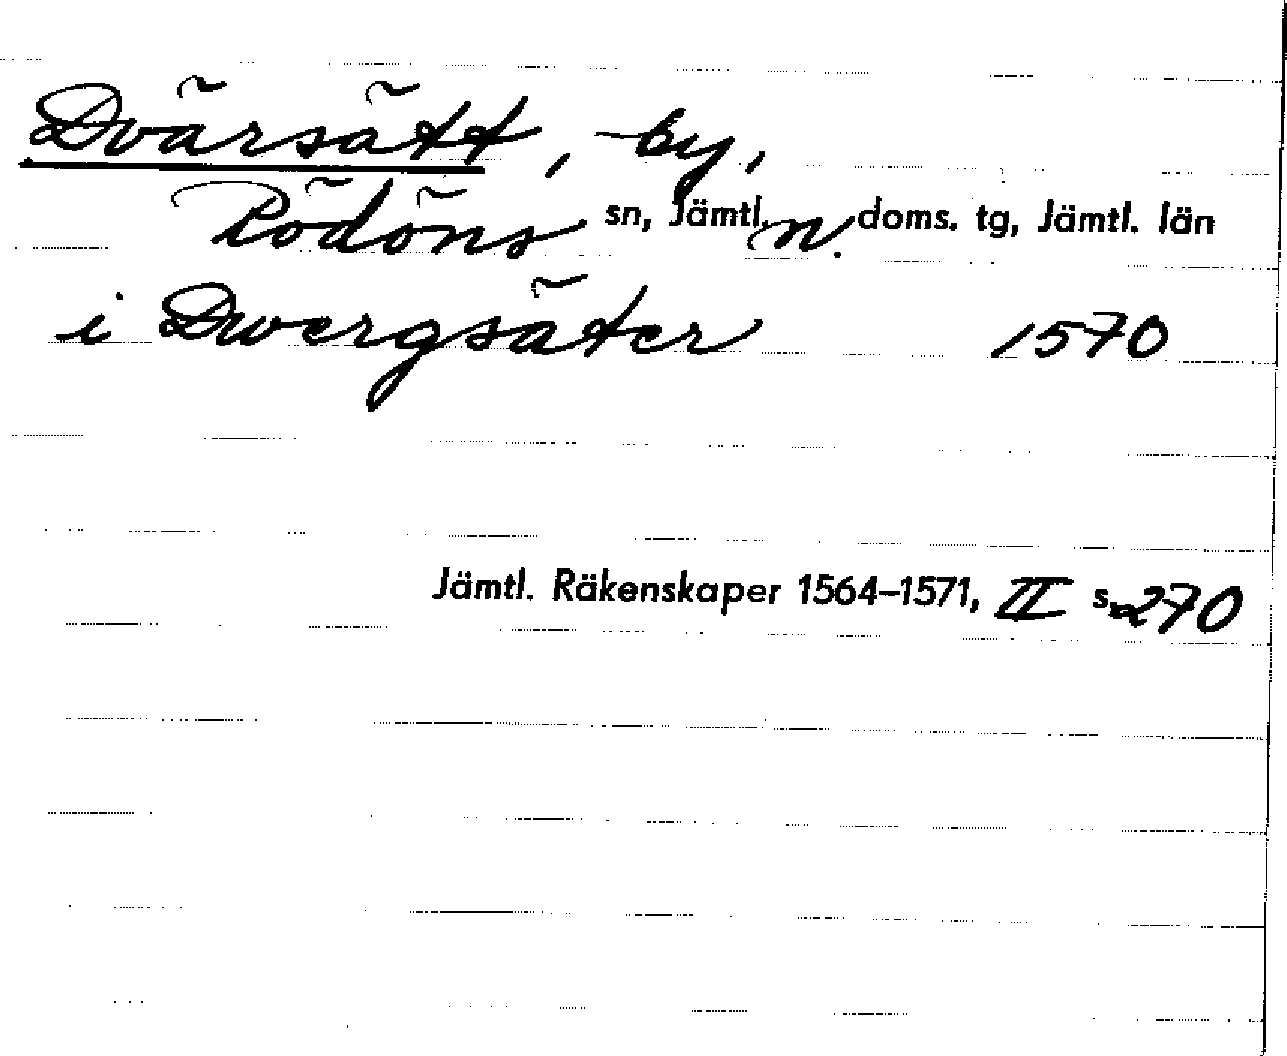 Dvärsätt, by,
Rödöns sn, Jämtl. n. doms. tg, Jämtl. län
i Dwergsäter 1570
Jämtl. Räkenskaper 1564–1571, II s. 270